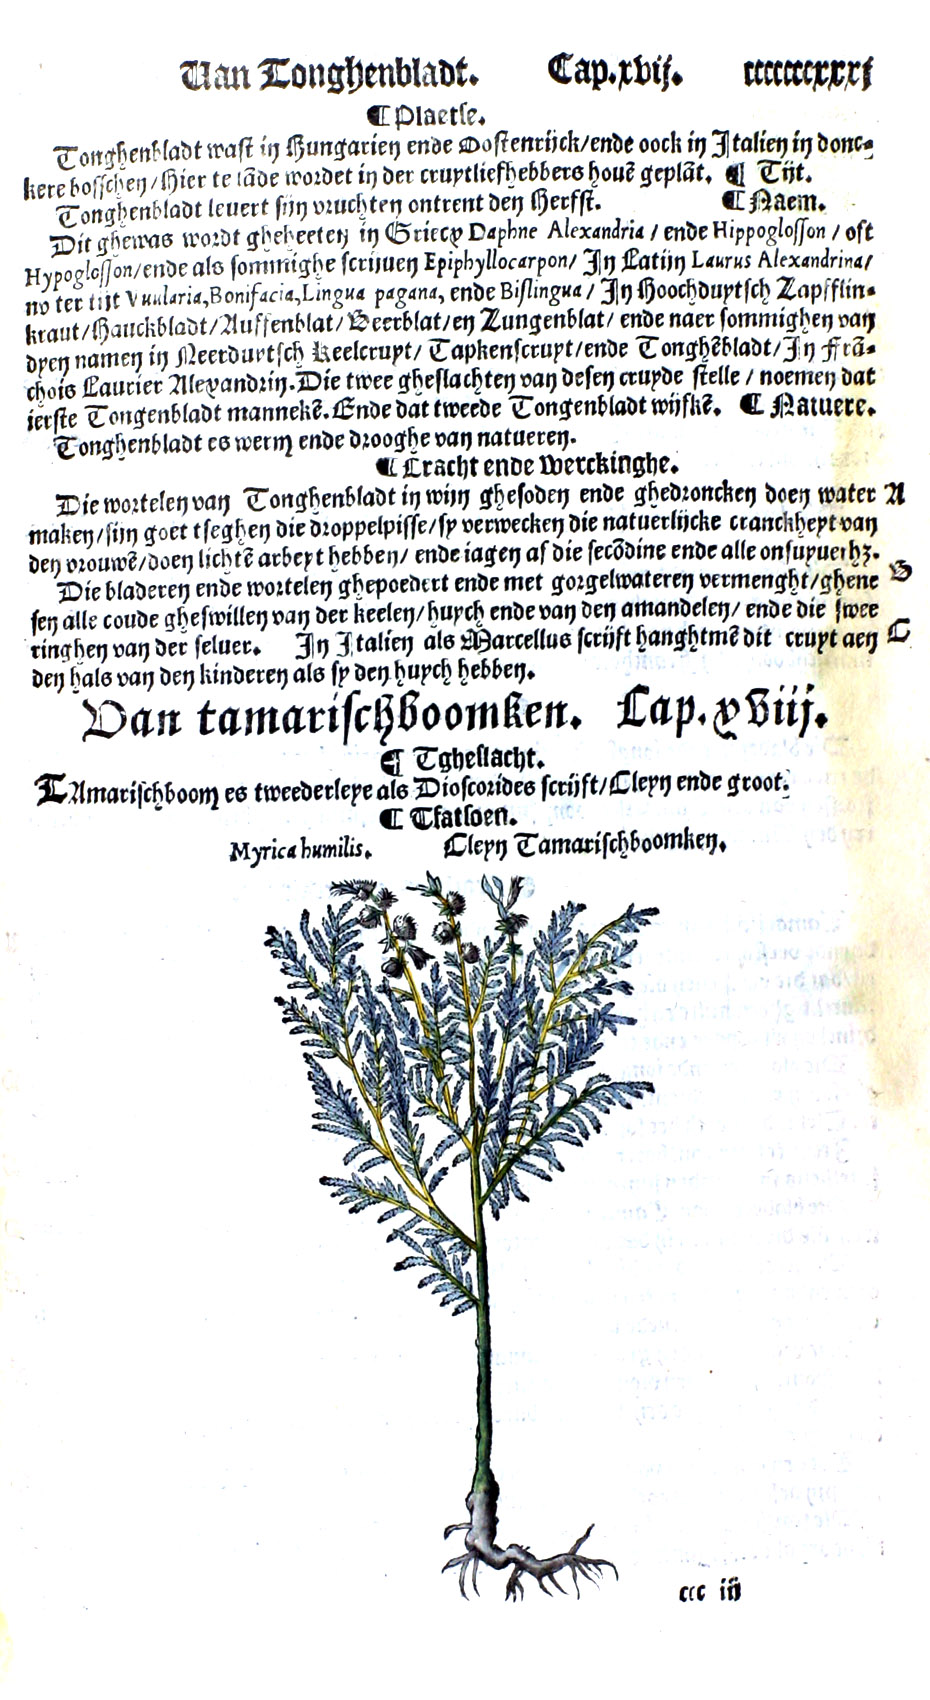 Van Tonghenbladt. Cap.xvij. ccccccxxxj
¶ Plaetse.
Tonghenbladt wast in Hungarien ende Oostenrijck/ende oock in Italien in donc-
kere bosschen/Hier te lāde wordet in der cruytliefhebbers houē geplāt. ¶ Tijt.
Tonghenbladt leuert sijn vruchten ontrent den Herfst. ¶ Naem.
Dit ghewas wordt gheheeten in Griecx Daphne Alexandria / ende Hippoglosson / oft
Hypoglosson/ende als sommighe scrijuen Epiphyllocarpon/ In Latijn Laurus Alexandrina/
nv ter tijt Vuularia,Bonifacia,Lingua pagana, ende Bislingua / In Hoochduytsch Zapfflin-
kraut/Hauckbladt/Auffenblat/Beerblat/en Zungenblat/ ende naer sommighen van
dyen namen in Neerduytsch Keelcruyt/ Tapkenscruyt/ende Tonghēbladt/In Frā-
chois Laurier Alexandrin.Die twee gheslachten van desen cruyde stelle / noemen dat
ierste Tongenbladt mannekē.Ende dat tweede Tongenbladt wijfkē. ¶ Natuere.
Tonghenbladt es werm ende drooghe van natueren.
¶ Cracht ende Werckinghe.
Die wortelen van Tonghenbladt in wijn ghesoden ende ghedroncken doen water A
maken/sijn goet tseghen die droppelpisse/sy verwecken die natuerlijcke cranckheyt van
den vrouwē/doen lichtē arbeyt hebben/ ende iagen af die secōdine ende alle onsuyuerhz.
Die bladeren ende wortelen ghepoedert ende met gorgelwateren vermenght/ghene B
sen alle coude gheswillen van der keelen/huych ende van den amandelen/ ende die swee
ringhen van der seluer. In Italien als Marcellus scrijft hanghtmē dit cruyt aen C
den hals van den kinderen als sy den huych hebben.
Van tamarischboomken. Cap.xviij.
¶ Tgheslacht.
TAmarischboom es tweederleye als Dioscorides scrijft/Cleyn ende groot.
¶ Tfatsoen.
Myrica humilis. Cleyn Tamarischboomken.
ccc iij